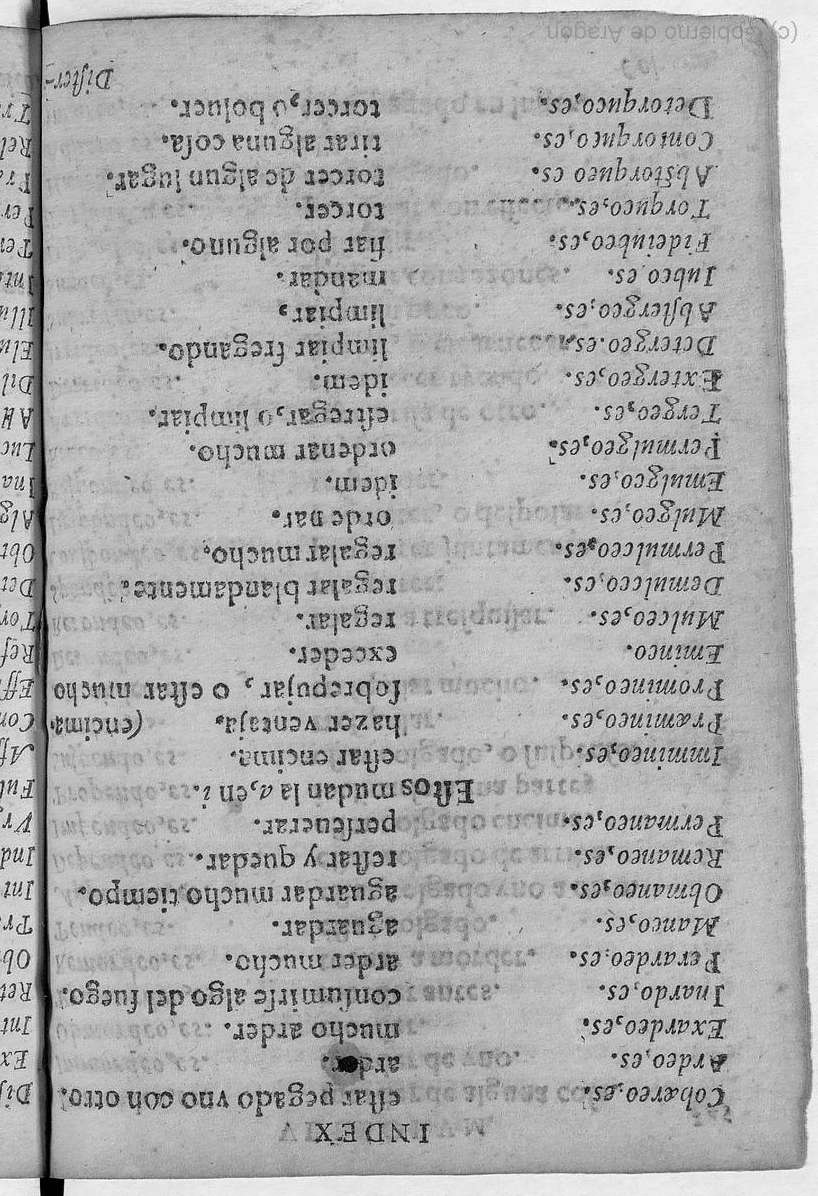 INDEX
Cohæreo,es. eſtar pegado vno con otro.
Ardeo,es. arder.
Exardeo,es. mucho arder.
Inardo,es. conſumirſe algo del fuego.
Perardeo,es. arder mucho.
Maneo,es. aguardar.
Obmaneo,es. aguardar mucho tiempo.
Remaneo,es. reſtar y quedar.
Permaneo,es. perſeuerar.
Eſtos mudan la a,en i.
Immineo,es. eſtar encima.
Præmineo,es. hazer ventaja. (encima.
Promineo,es. ſobrepujar, o eſtar mucho
Emineo. exceder.
Mulceo,es. regalar.
Demulceo,es. regalar blandamente.
Permulceo,es. regalar mucho.
Mulgeo,es. ordenar.
Emulgeo,es. idem.
Permulgeo,es. ordenar mucho.
Tergeo,es. eſtregar,o limpiar.
Extergeo,es. idem.
Detergeo.es. limpiar fregando.
Abſtergeo,es. limpiar,
Iubeo es. mandar.
Fideiubeo,es. fiar por alguno.
Torqueo,es. torcer.
Abſtorqueo es. torcer de algun lugar.
Contorqueo,es. tirar alguna coſa.
Detorqueo,es. torcer,o boluer.
Diſter-
(c) Gobierno de Aragón